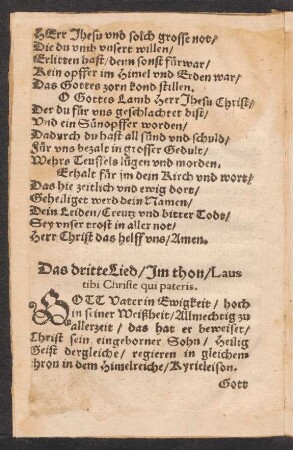 HErr Jhesu vnd solch grosse not/
Die du vmb vnsert willen/
Erlitten hast/denn sonst fürwar/
Kein opffer im Himel vnd Erden war/
Das Gottes zorn kond stillen.
O Gottes Lamb Herr Jhesu Christ/
Der du für vns geschlachtet bist/
Vnd ein Sünopffer worden/
Dadurch du hast all sünd vnd schuld/
Für vns bezalt in grosser Gedult/
Wehrs Teuffels lügen vnd morden.
Erhalt für im dein Kirch vnd wort/
Das hie zeitlich vnd ewig dort/
Geheiliget werd dein Namen/
Dein Leiden/Creutz vnd bitter Todt/
Sey vnser trost in aller not/
Herr Christ das helff vns/Amen.
Das dritte Lied/Im thon/Laus
tibi Christe qui pateris.
GOTT Vater in Ewigkeit/ hoch
in seiner Weißheit/Allmechtig zu
allerzeit/ das hat er beweiset/
Christ sein eingeborner Sohn/ Heilig
Geist dergleiche/ regieren in gleichem
thron in dem Himelreiche/Kyrieleison.
Gott